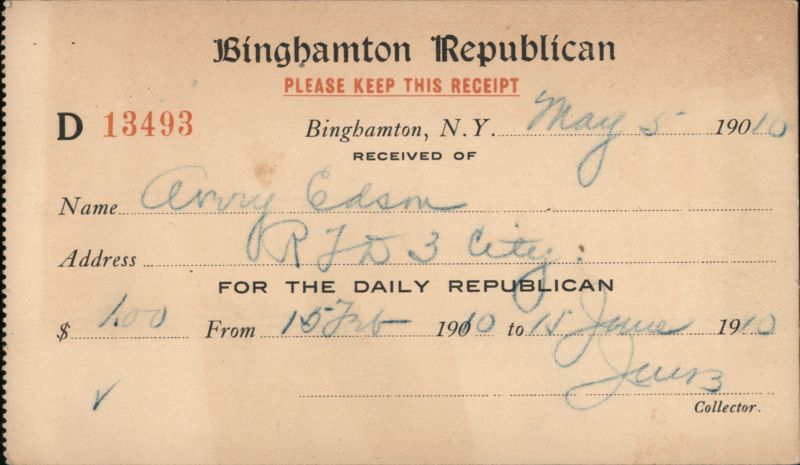 Binghamton Republican
PLEASE KEEP THIS RECEIPT
D 13493 Binghamton, N.Y. May 5 19010
RECEIVED OF
Name Avery Edson
Address R F D 3 City.
FOR THE DAILY REPUBLICAN
$ 1.00 From 15 Feb 19010 to 15 June 1910
Collector.